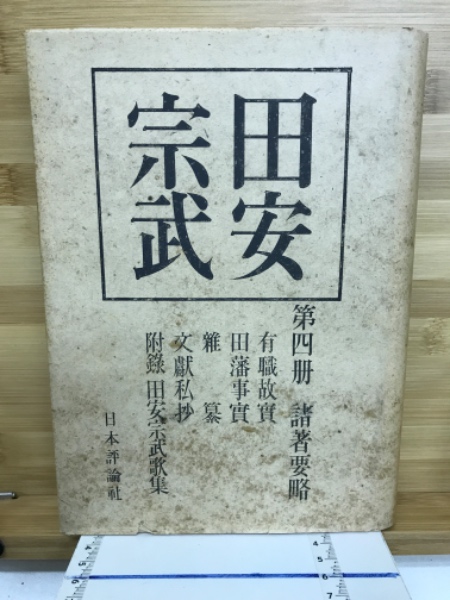 田安
宗武
第四册 諸著要略
有職故實
田藩事實
雜纂
文獻私抄
附錄 田安宗武歌集
日本評論社
4
5
6
4
5
6
7